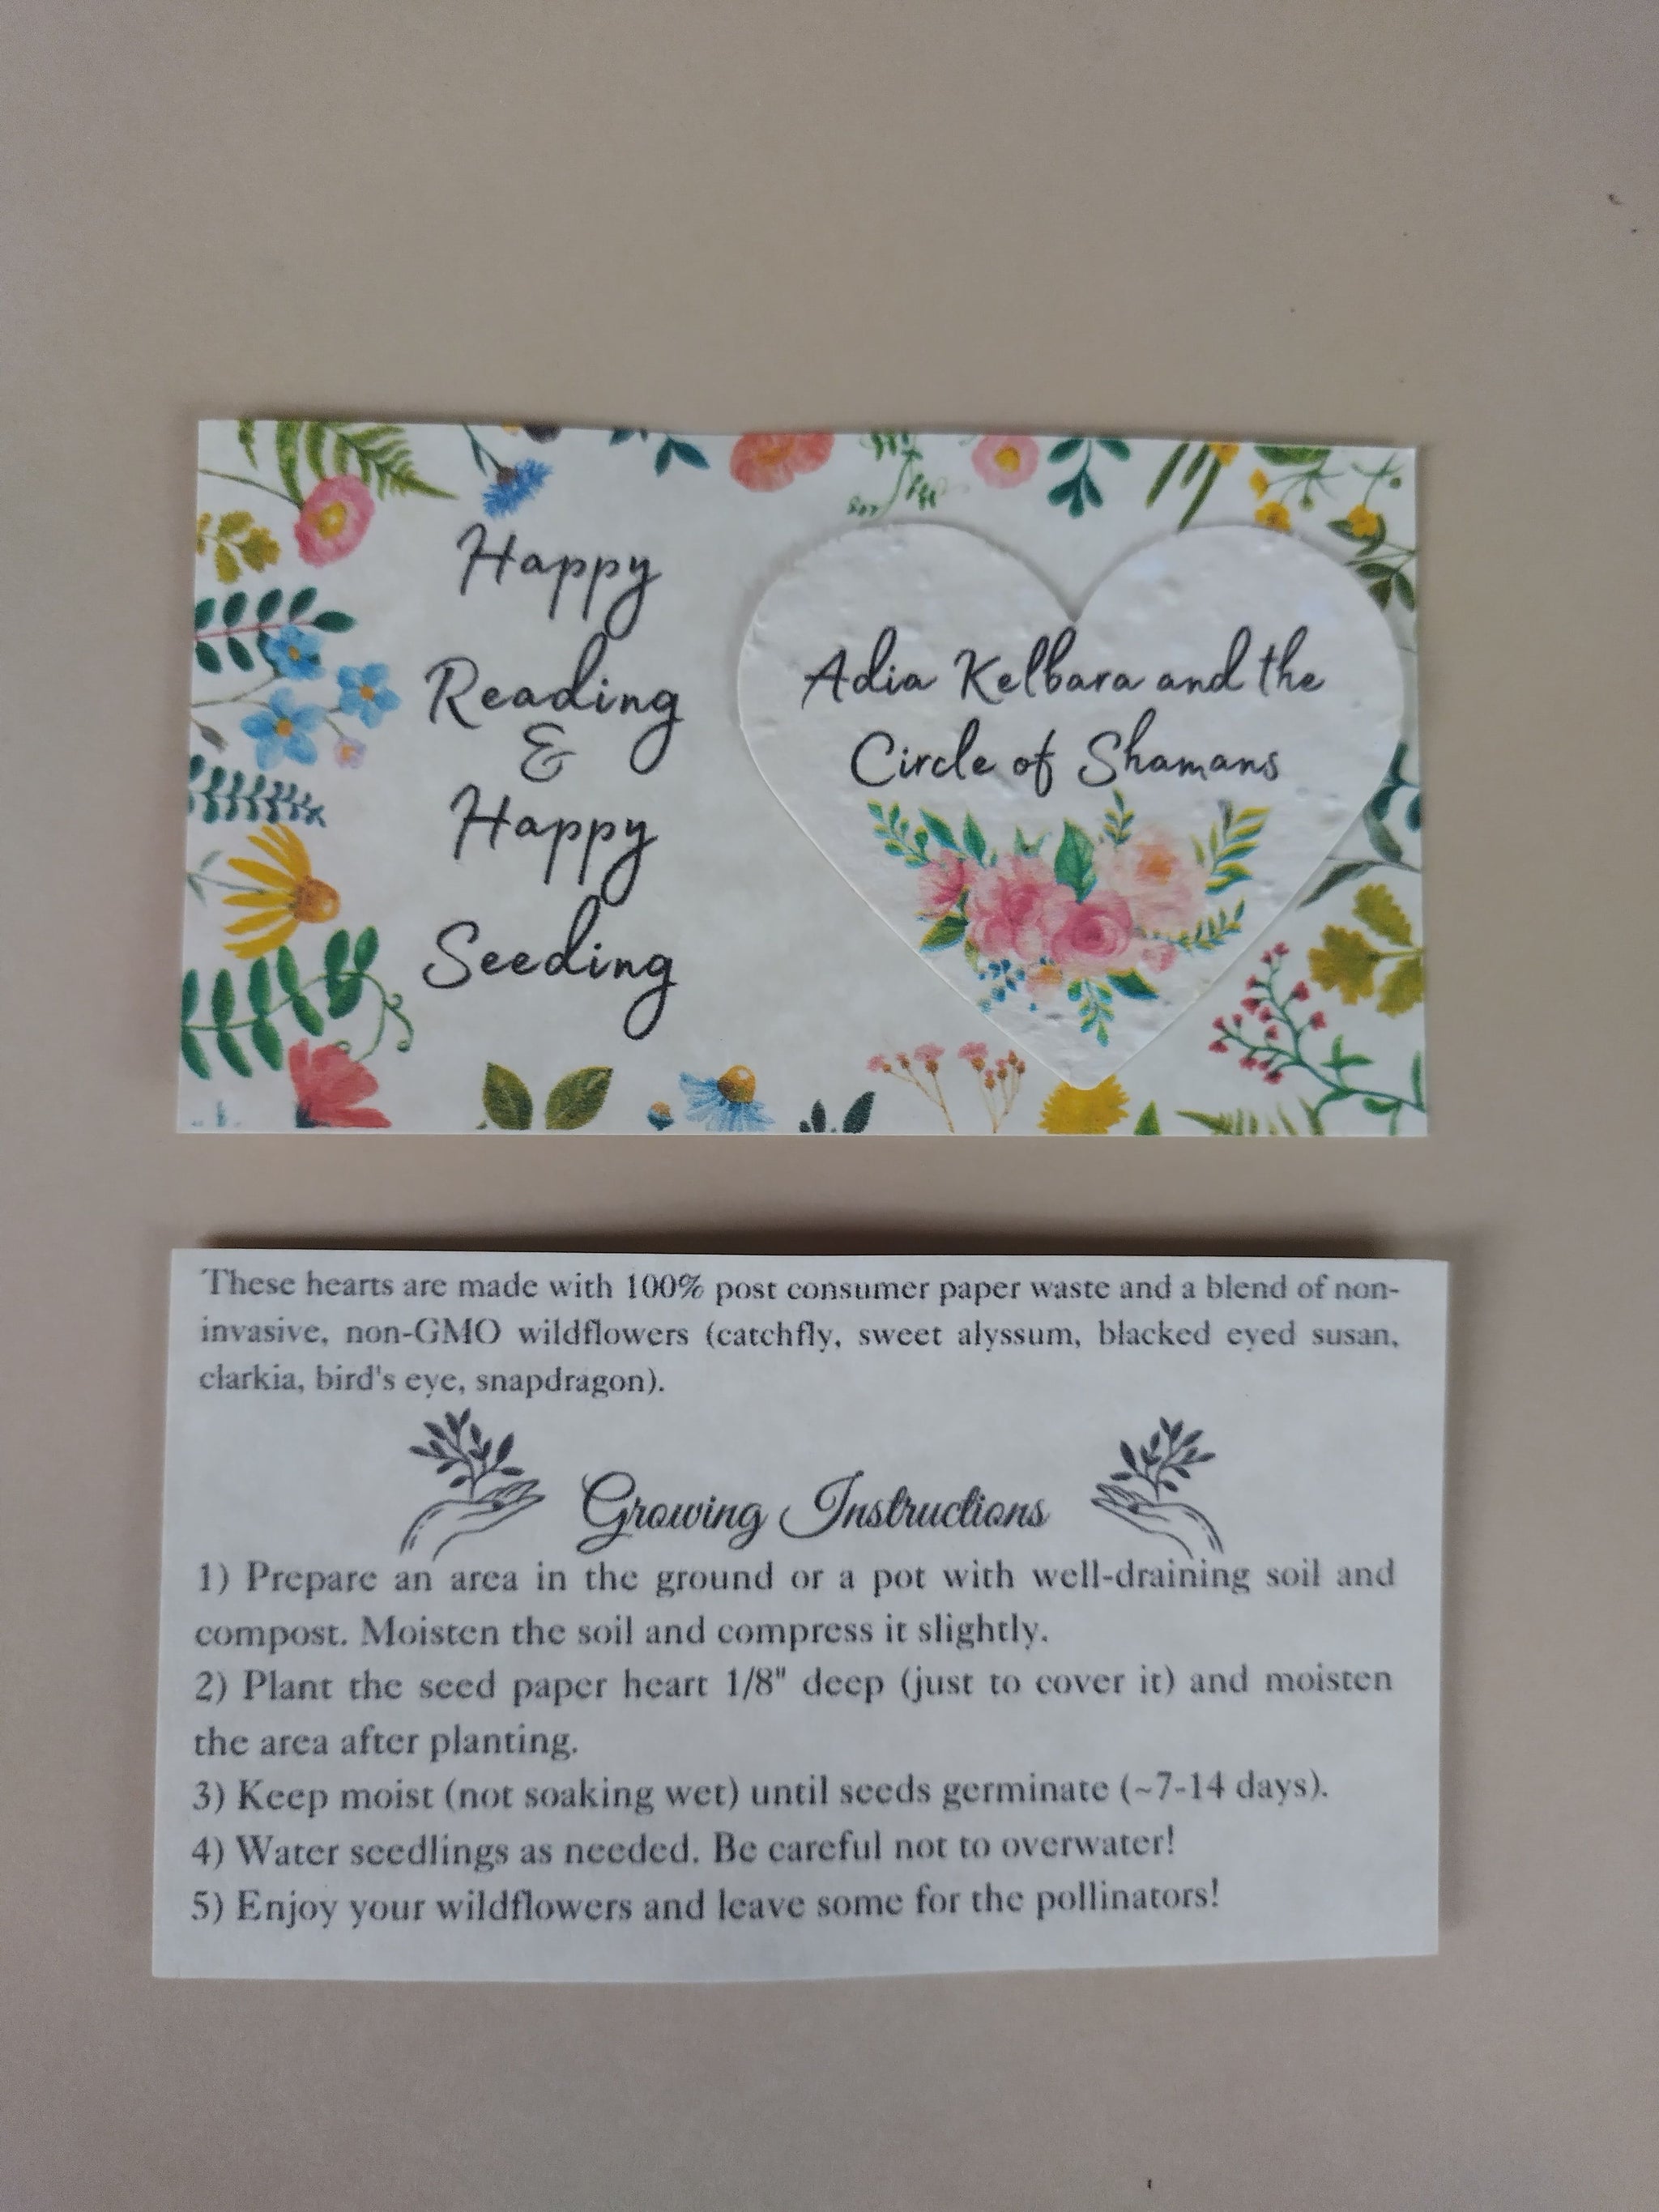 Happy
Reading
&
Happy
Seeding
Adia Kelbara and the
Circle of Shamans
These hearts are made with 100% post consumer paper waste and a blend of non-
invasive, non-GMO wildflowers (catchfly, sweet alyssum, blacked eyed susan,
clarkia, bird's eye, snapdragon).
Growing Instructions
1) Prepare an area in the ground or a pot with well-draining soil and
compost. Moisten the soil and compress it slightly.
2) Plant the seed paper heart 1/8" deep (just to cover it) and moisten
the area after planting.
3) Keep moist (not soaking wet) until seeds germinate (~7-14 days).
4) Water seedlings as needed. Be careful not to overwater!
5) Enjoy your wildflowers and leave some for the pollinators!